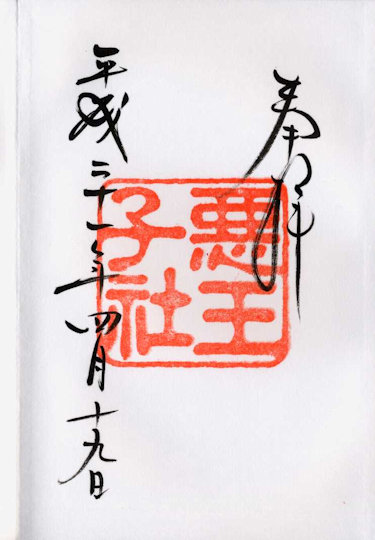 奉拝
悪王
子社
平成三十一年四月十九日